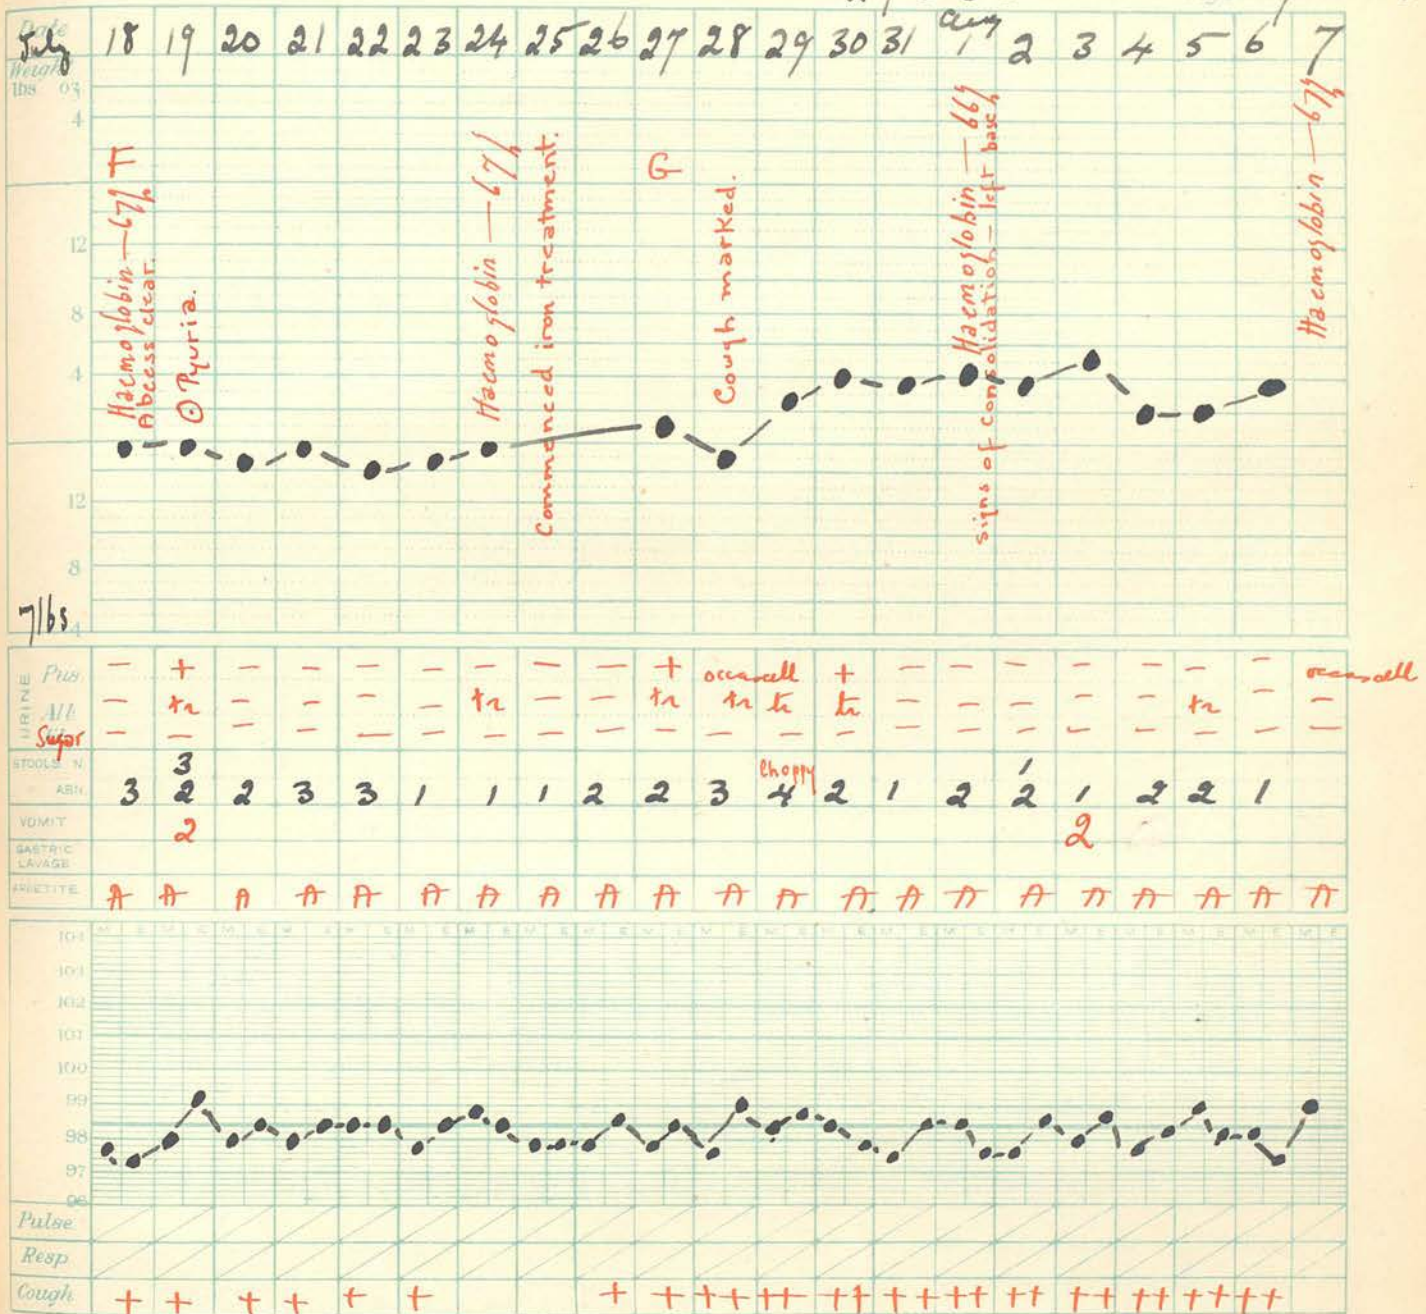 Date
July 18 19 20 21 22 23 24 25 26 27 28 29 30 31 Aug 1 2 3 4 5 6 7
Weight
lbs 03
4
12
8
4
12
8
4
7 lbs
F
Haemoglobin — 67%
Abcess clear.
⊙ Pyuria.
Haemoglobin — 67%
Commenced iron treatment.
G
Cough marked.
Haemoglobin — 66%
Signs of consolidation — left base
Haemoglobin — 67%
URINE
Pus − + − − − − − − − + occas cell + − − − − − − − occas cell
Alb − tr − − − − tr − − tr tr tr tr − − − − − tr − −
Sugar − − − − − − − − − − − − − − − − − − − − −
STOOLS N 3 Choppy 1
ABN. 3 2 2 3 3 1 1 1 2 2 3 4 2 1 2 2 1 2 2 1
VOMIT 2 2
GASTRIC
LAVAGE
APPETITE A A A A A A A A A A A A A A A A A A A A A
M E M E M E M E M E M E M E M E M E M E M E M E M E M E M E M E M E M E M E M E M E
104
103
102
101
100
99
98
97
96
Pulse
Resp
Cough + + + + + + + + ++ ++ ++ ++ ++ ++ ++ ++ ++ ++